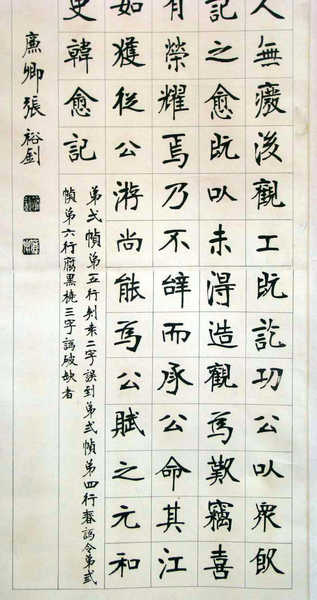 人無廢後觀工既訖功公以眾飲
記之愈既以未得造觀為歎竊喜
有榮耀焉乃不辭而承公命其江
如獲從公游尚能為公賦之元和
史韓愈記
第弍幀第五行刾來二字誤到第弍幀第四行春譌令第弍
幀第六行腐黑撓三字譌破缺者
廉卿張裕釗